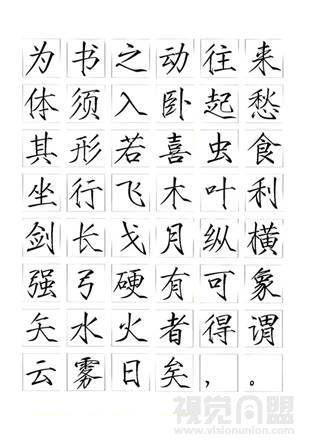 为书之动往来
体须入卧起愁
其形若喜虫食
坐行飞木叶利
剑长戈月纵横
强弓硬有可象
矢水火者得谓
云雾日矣，。
視觉同盟
www.visionunion.com